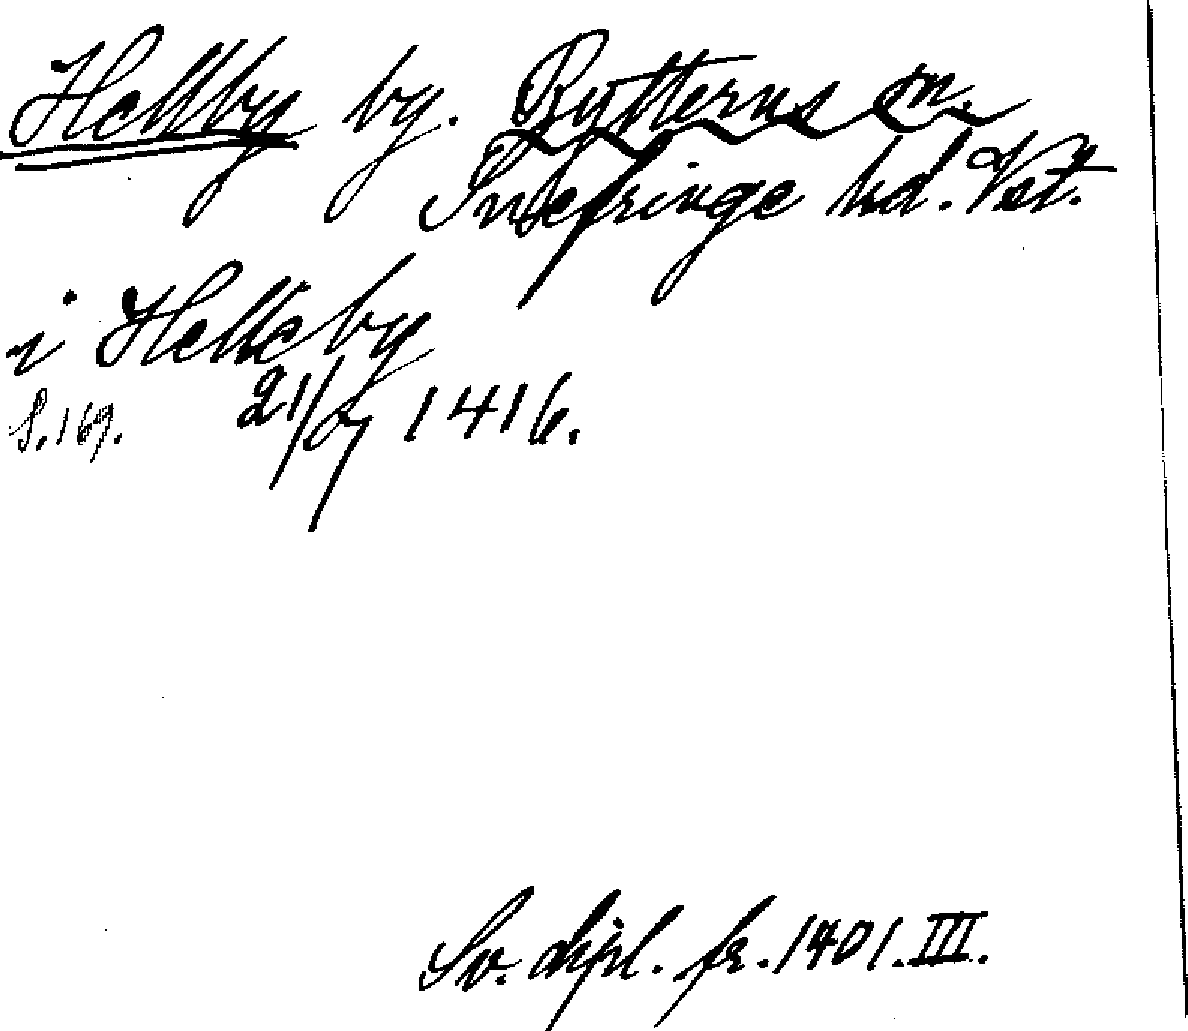 Hellby by. Rytterns sn.
Snefringe hd. Vstm.
i Helleby
S. 169. 21/9 1416.
Sv. dipl. fr. 1401. III.